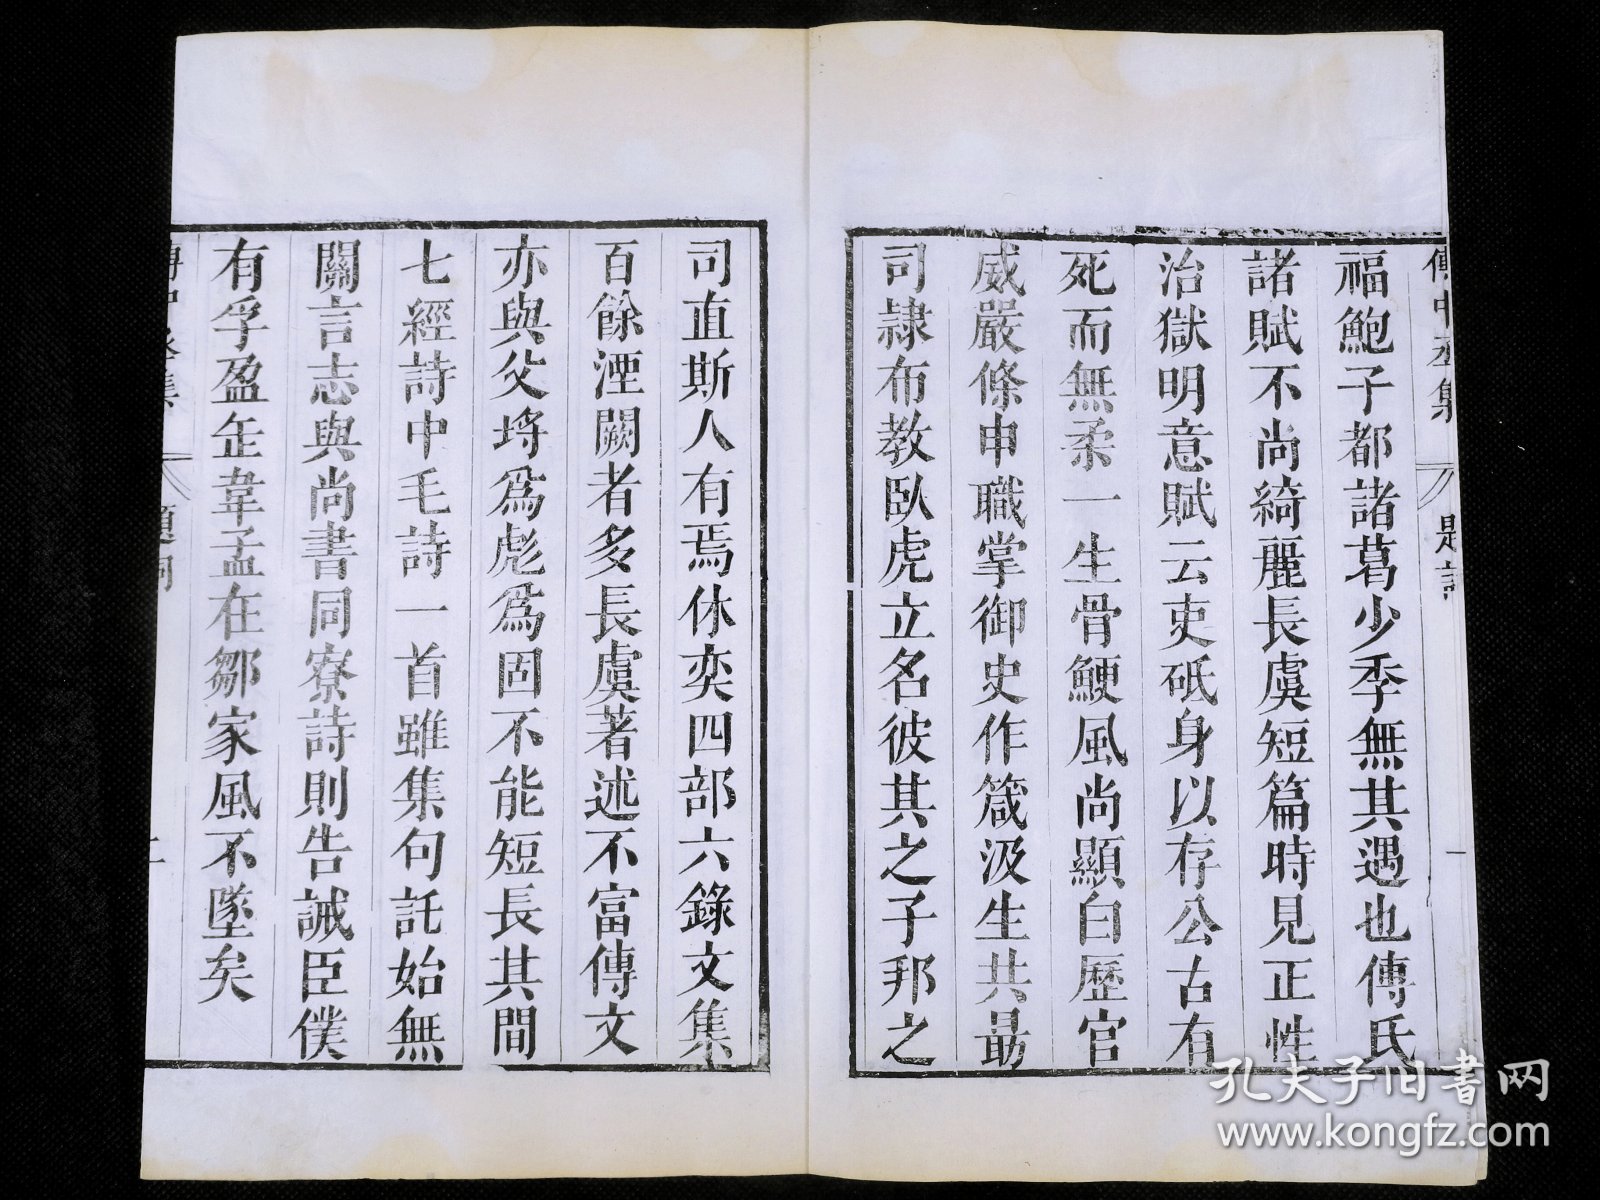 傅中丞集 題詞 一
福鮑子都諸葛少季無其遇也傅氏
諸賦不尚綺麗長虞短篇時見正性
治獄明意賦云吏砥身以存公古有
死而無柔一生骨鯁風尚顯白歷官
威嚴條申職掌御史作箴汲生共最
司隷布教臥虎立名彼其之子邦之
司直斯人有焉休奕四部六錄文集
百餘湮闕者多長虞著述不富傳文
亦與父埓爲彪爲固不能短長其間
七經詩中毛詩一首雖集句託始無
關言志與尚書同寮詩則告誡臣僕
有孚盈缶韋孟在鄒家風不墜矣
孔夫子旧书网
www.kongfz.com